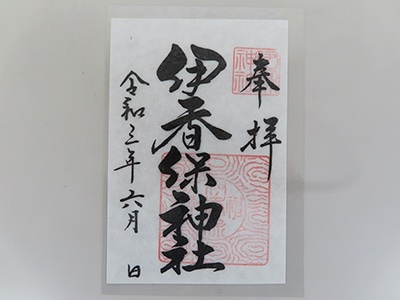 奉拝
伊香保神社
令和三年六月 日